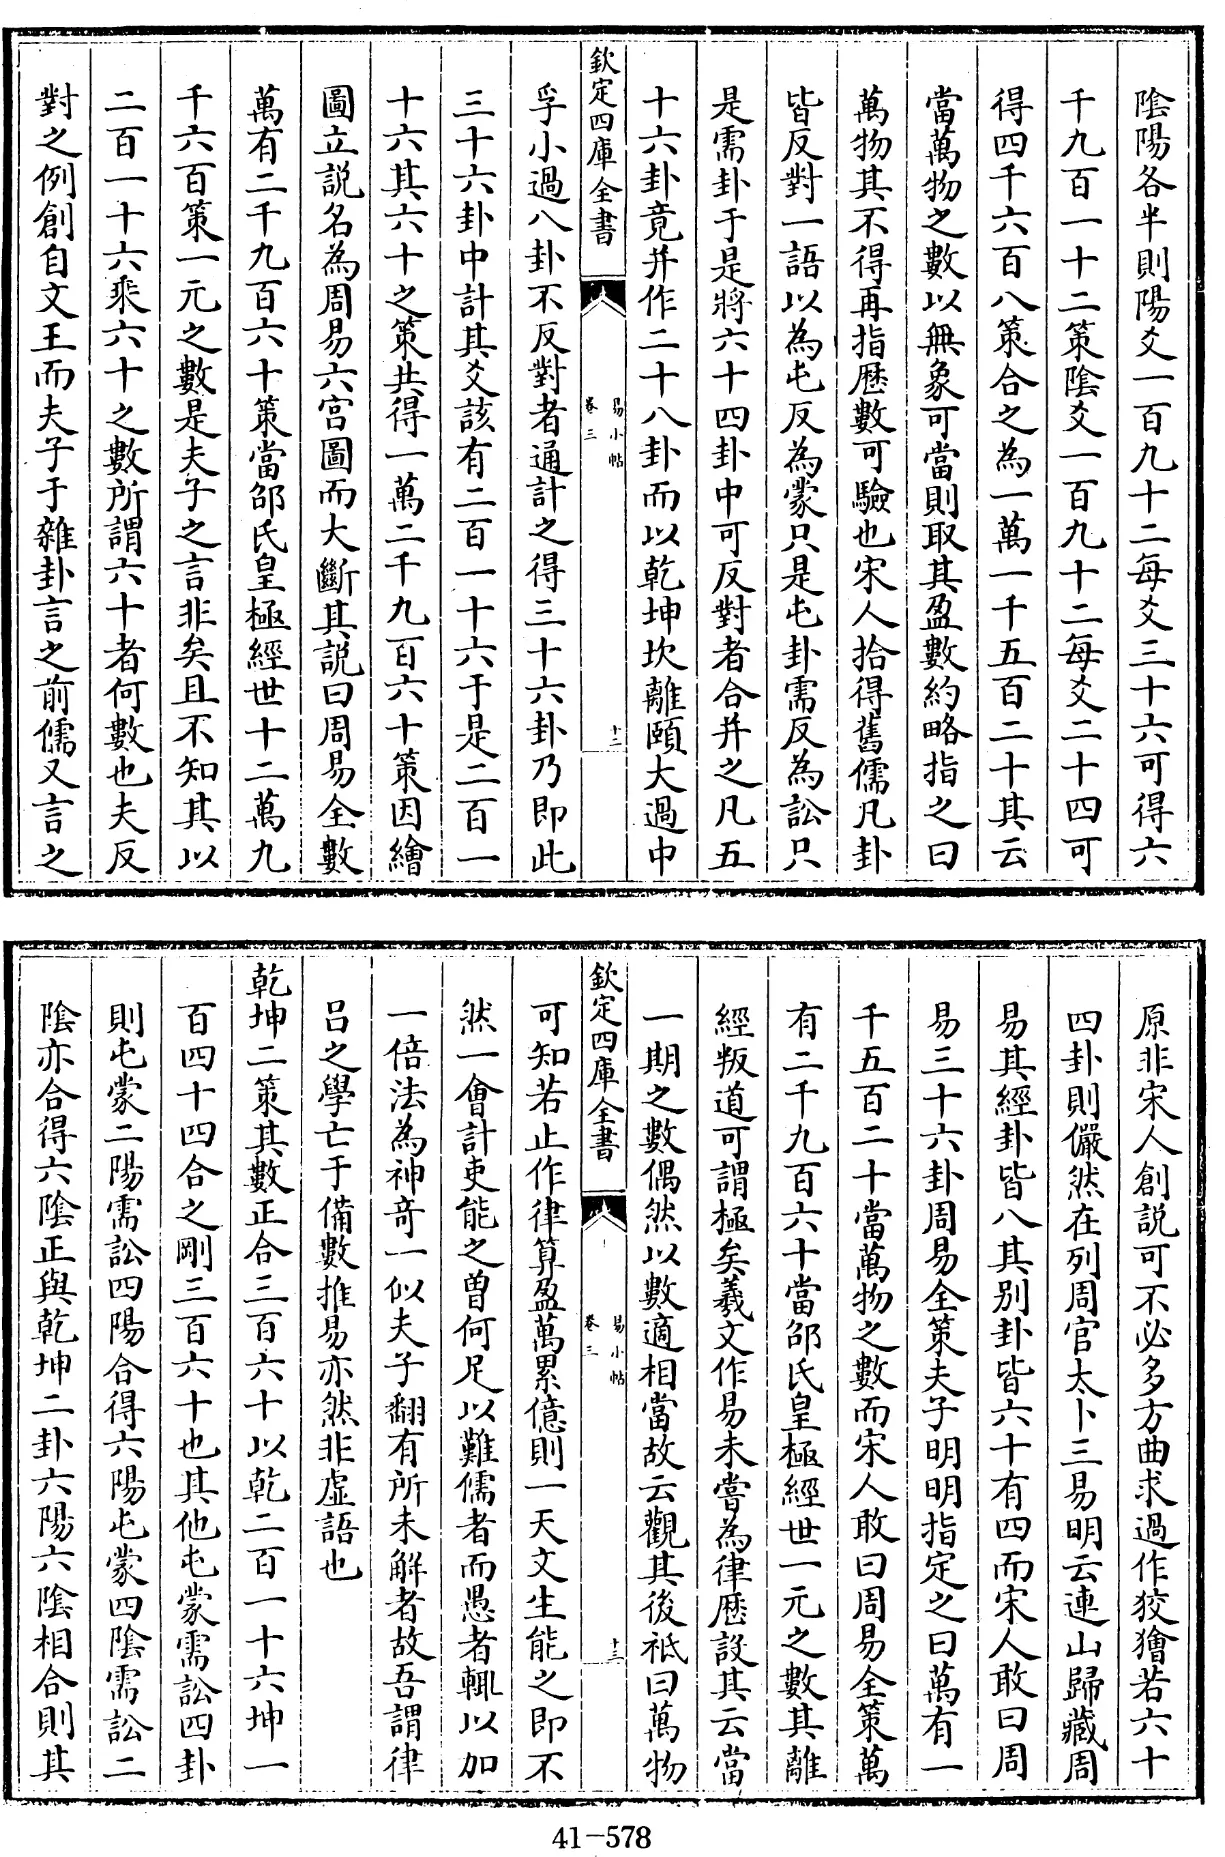 陰陽各半則陽爻一百九十二每爻三十六可得六
千九百一十二策陰爻一百九十二每爻二十四可
得四千六百八策合之為一萬一千五百二十其云
當萬物之數以無象可當則取其盈數約略指之曰
萬物其不得再指歴數可驗也宋人拾得舊儒凡卦
皆反對一語以為屯反為蒙只是屯卦需反為訟只
是需卦于是將六十四卦中可反對者合并之凡五
十六卦竟并作二十八卦而以乾坤坎離頤大過中
欽定四庫全書
易小帖
卷三
十二
孚小過八卦不反對者通計之得三十六卦乃即此
三十六卦中計其爻該有二百一十六于是二百一
十六其六十之策共得一萬二千九百六十策因繪
圖立説名為周易六宫圖而大斷其説曰周易全數
萬有二千九百六十策當邵氏皇極經世十二萬九
千六百策一元之數是夫子之言非矣且不知其以
二百一十六乘六十之數所謂六十者何數也夫反
對之例創自文王而夫子于雜卦言之前儒又言之
原非宋人創説可不必多方曲求過作狡獪若六十
四卦則儼然在列周官太卜三易明云連山歸藏周
易其經卦皆八其别卦皆六十有四而宋人敢曰周
易三十六卦周易全策夫子明明指定之曰萬有一
千五百二十當萬物之數而宋人敢曰周易全策萬
有二千九百六十當邵氏皇極經世一元之數其離
經叛道可謂極矣羲文作易未嘗為律歴設其云當
一期之數偶然以數適相當故云觀其後祇曰萬物
欽定四庫全書
易小帖
卷三
十三
可知若止作律算盈萬累億則一天文生能之即不
然一會計吏能之曽何足以難儒者而愚者輒以加
一倍法為神竒一似夫子翻有所未解者故吾謂律
吕之學亡于備數推易亦然非虚語也
乾坤二策其數正合三百六十以乾二百一十六坤一
百四十四合之剛三百六十也其他屯蒙需訟四卦
則屯蒙二陽需訟四陽合得六陽屯蒙四陰需訟二
陰亦合得六陰正與乾坤二卦六陽六陰相合則其
41-578